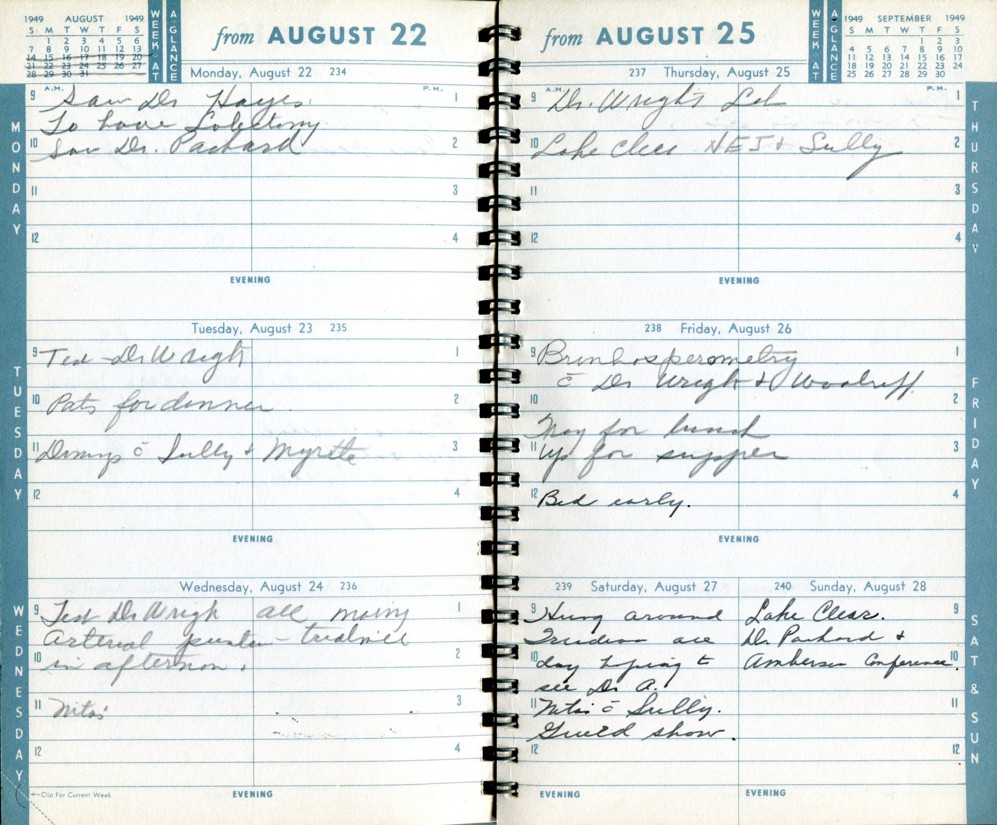 1949 AUGUST 1949
S M T W T F S
1 2 3 4 5 6
7 8 9 10 11 12 13
14 15 16 17 18 19 20
21 22 23 24 25 26 27
28 29 30 31
WEEK-AT
A-GLANCE
from AUGUST 22
Monday, August 22 234
MONDAY
A.M.
P.M.
9 Saw Dr Hayes. 1
To have Lobectomy
10 Saw Dr. Packard 2
11 3
12 4
EVENING
Tuesday, August 23 235
TUESDAY
9 Test Dr Wright 1
10 Pats for dinner 2
11 c̄ Sully + Myrtle 3
12 4
EVENING
Wednesday, August 24 236
WEDNESDAY
9 Test Dr Wrigh all morning 1
Arterial
10 in afternoon. 2
11 Nitas 3
12 4
←Clip For Current Week
EVENING
from AUGUST 25
WEEK-AT
A-GLANCE
1949 SEPTEMBER 1949
S M T W T F S
1 2 3
4 5 6 7 8 9 10
11 12 13 14 15 16 17
18 19 20 21 22 23 24
25 26 27 28 29 30
237 Thursday, August 25
THURSDAY
A.M.
P.M.
9 Dr. Wrights Lab 1
10 Lake Clear NEJ + Sully 2
11 3
12 4
EVENING
238 Friday, August 26
FRIDAY
9 Bronhosperometry 1
c̄ Dr Wrigh + Woodruff.
10 2
Nog for lunch
11 Up for supper 3
12 Bed early. 4
EVENING
239 Saturday, August 27
9 Hung around
Trudeau all
10 day hoping to
see Dr A.
11 Nitas c̄ Sully.
Guild show.
12
EVENING
240 Sunday, August 28
Lake Clear. 9
Dr Packard +
Amberson Conference. 10
11
12
EVENING
SAT & SUN